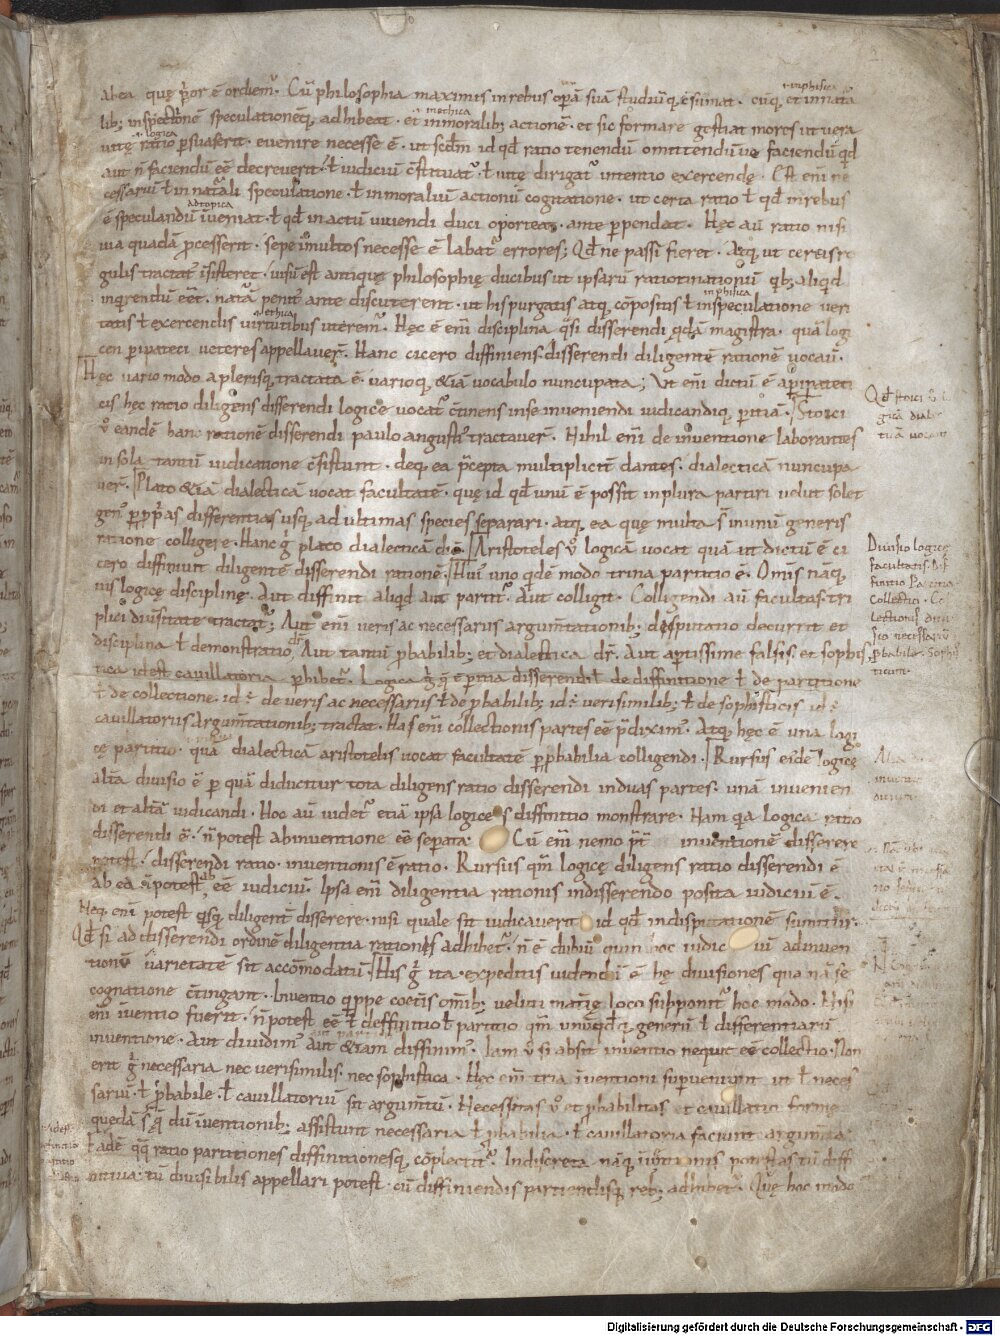 ab ea quę p̄or ē ordiem᷑. Cū philosophia maximis in rebus op̄ā suā studiūq; c̄sumat. cūq; et in nat̄a
.i. in phisica
lib; inspectionē speculationēq; adhibeat. et in moralib; actionē. et sic formare gestiat mores ut uera
.i. in ethica
uitę ratio p̱suaserit. euenire necesse ē. ut sc̄dm id qd̄ ratio tenendū omittendū uę faciendū qd
.i. logica
aut n̄ faciendū eē decreuerit. ł iudiciū c̄stituat᷑. ł uitę dirigat᷑ intentio exercendę. Est eni ne
cessariū ł in nat̄ali speculatione. ł in moraliū actionū cognatione. ut certa ratio ł qd̄ in rebus
ad topica
ē speculandū īueniat. ł qd̄ in actū uiuendi duci oporteat. ante p̱pendat. Hęc aū ratio nisi
uia quadā p̱cesserit. sepe in multos necesse ē labat᷑ errores; Qd̄ ne passī fieret. Atq; ut certis re
gulis tractat᷑ īsisteret. uisū est antiquę philosophię ducibus ut ipsarū ratiotinationū qb; aliqd
inq̄rendū eēt. nat̄ā penit᷒ ante discuterent. ut his purgatis atq; cōpositis ł in speculatione ueri
in phisica
tatis ł exercendis uirtutibus uterem᷑. Hęc ē eni disciplina q̄si disserendi q̄dā magistra. quā logi
ethica
cen p̱ipateci ueteres appellauer̄. Hanc cicero diffiniens. disserendi diligentē rationē uocauī.
Hęc uario modo a plerisq; tractata ē. uarioq; &iā uocabulo nuncupata; Ut eni dictū ē a p̱ipateti
cis hęc ratio diligens disserendi logice uocat᷑ c̄tinens in se inueniendi iudicandiq; p̱itiā. Stoici
u᷒ eandē hanc rationē disserendi paulo angusti᷒ tractauer̄. Nihil eni de inuentione laborantes
in sola tantū iudicatione c̄sistunt. deq; ea p̄cepta multiplicit̄ dantes. dialecticā nuncupa
uer̄. Plato &iā dialecticā uocat facultatē. quę id qd̄ unū ē possit in plura partiri uelut solet
gen᷒ p̱ p̱p̄as differentias usq; ad ultimas species separari. atq; ea quę multa s̄ in unū generis
ratione colligere. Hanc ḡ plato dialecticā dic̄. Aristoteles u᷒ logicā uocat quā ut dictū ē ci
cero diffiniuit diligentē disserendi rationē. Hui᷒ uno q̄dē modo trina partitio ē. Omīs nāq;
uis logicę disciplinę. Aut diffinit aliqd aut partit᷑. aut colligit. Colligendi aū facultas tri
plici diūsitate tractat᷑; Aut eni ueris ac necessariis argum̄tationib; desputatio decurrit et
disciplina ł demonstratio dr̄. Aut tantū p̱babilib; et dialectica dr̄. Aut ap̱tissime falsis. et sophis
tica idest cauillatoria p̱hibet᷑. Logica ḡ q̄ ē p̱itia disserendi ł de diffinitione ł de partitione
ł de collectione. id ē de ueris ac necessariis ł de p̱babilib; id ē uerisimilib; ł de sophisticis id ē
cauillatoriis argum̄tationib; tractat. Has eni collectionis partes eē p̄dixim᷒. Atq; hęc ē una logi
cę partitio. quā dialecticā aristotelis uocat facultatē p̱ p̱babilia colligendi. Rursus eidē logicę
altā diuisio ē p̱ quā diducitur tota diligens ratio disserendi in duas partes. unā inuenien
di et altā iudicandi. Hoc aū uidet᷑ etiā ipsa logices diffinitio monstrare. Nam q̄a logica ratio
disserendi ē. n̄ potest ab inuentione eē separata. Cū eni nemo pt̄ inuentionē disserere
potest. disserendi ratio. inuentionis ē ratio. Rursus qm̄ logicę diligens ratio disserendi ē
ab ea n̄ potest eē iudiciū. Ipsa eni diligentia rationis in disserendo posita iudiciū ē.
Neq; eni potest q̄sq; diligent̄ disserere. nisi quale sit iudicauerit id qd̄ in disputationē sumitur.
Qd̄ si ad disserendi ordinē diligentia rationis adhibet᷑. n̄ ē dubiū quin hoc iudiciū ad inuen
tionū uarietatē sit accōmodatū. His ḡ ita expeditis uidendū ē hę diuisiones qua nā se
cognatione c̄tingant. Inuentio q̄ppe coetis omīb; ueluti materię loco supponit᷑ hoc modo. Nisi
eni īuentio fuerit. n̄ potest eē ł deffinitio ł partitio qm̄ unūqd̄q; generū ł differentiarū
inuentione. Aut diuidim᷒ aut &iam diffinim᷒. Iam u᷒ si absit inuentio nequit eē collectio. Non
erit ḡ necessaria nec uerisimilis. nec sophistica. Hęc eni tria īuentioni sup̱ueniunt ut ł neces
sariū. ł p̱babile. ł cauillatoriū sit argum̄tū. Necessitas u᷒ et p̱babilitas et cauillatio formę
quedā s̄ q̄ dū īuentionib; assistunt necessaria ł p̱babilia. ł cauillatoria faciunt argum̄ta.
Eadē q̄q; ratio partitiones diffinitionesq; cōplectit᷑. Indiscreta nāq; īuentionis potestas tū diffi
nitiua. tū diuisibilis appellari potest. cū diffiniendis partiendisq; reb; adhibet᷑. Quę hoc modo
Qd̄ stoici
gicā dialec
ticā uocant
Diuisio logicę
facultatis. Dif
finitio Partitio
Collectici. Col
lectionis diui
sio necessariū
p̱babile. Sophis
ticum
Digitalisierung gefördert durch die Deutsche Forschungsgemeinschaft - DFG